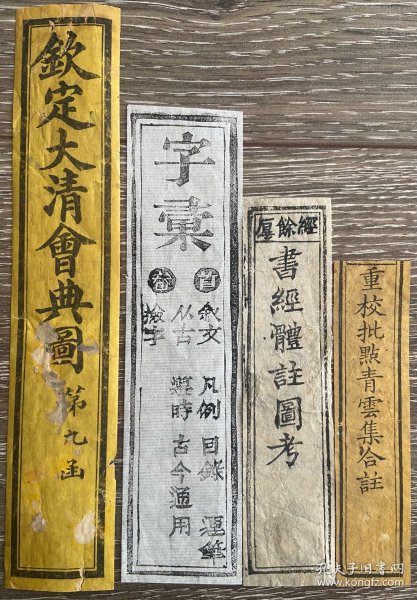 欽定大清會典圖 第九函
字彙
首卷
敘文 凡例 目錄 運筆
从古 遵時 古今通用
檢字
經餘厚
書經體註圖考
重校批點青雲集合註
孔夫子旧书网
www.kongfz.com